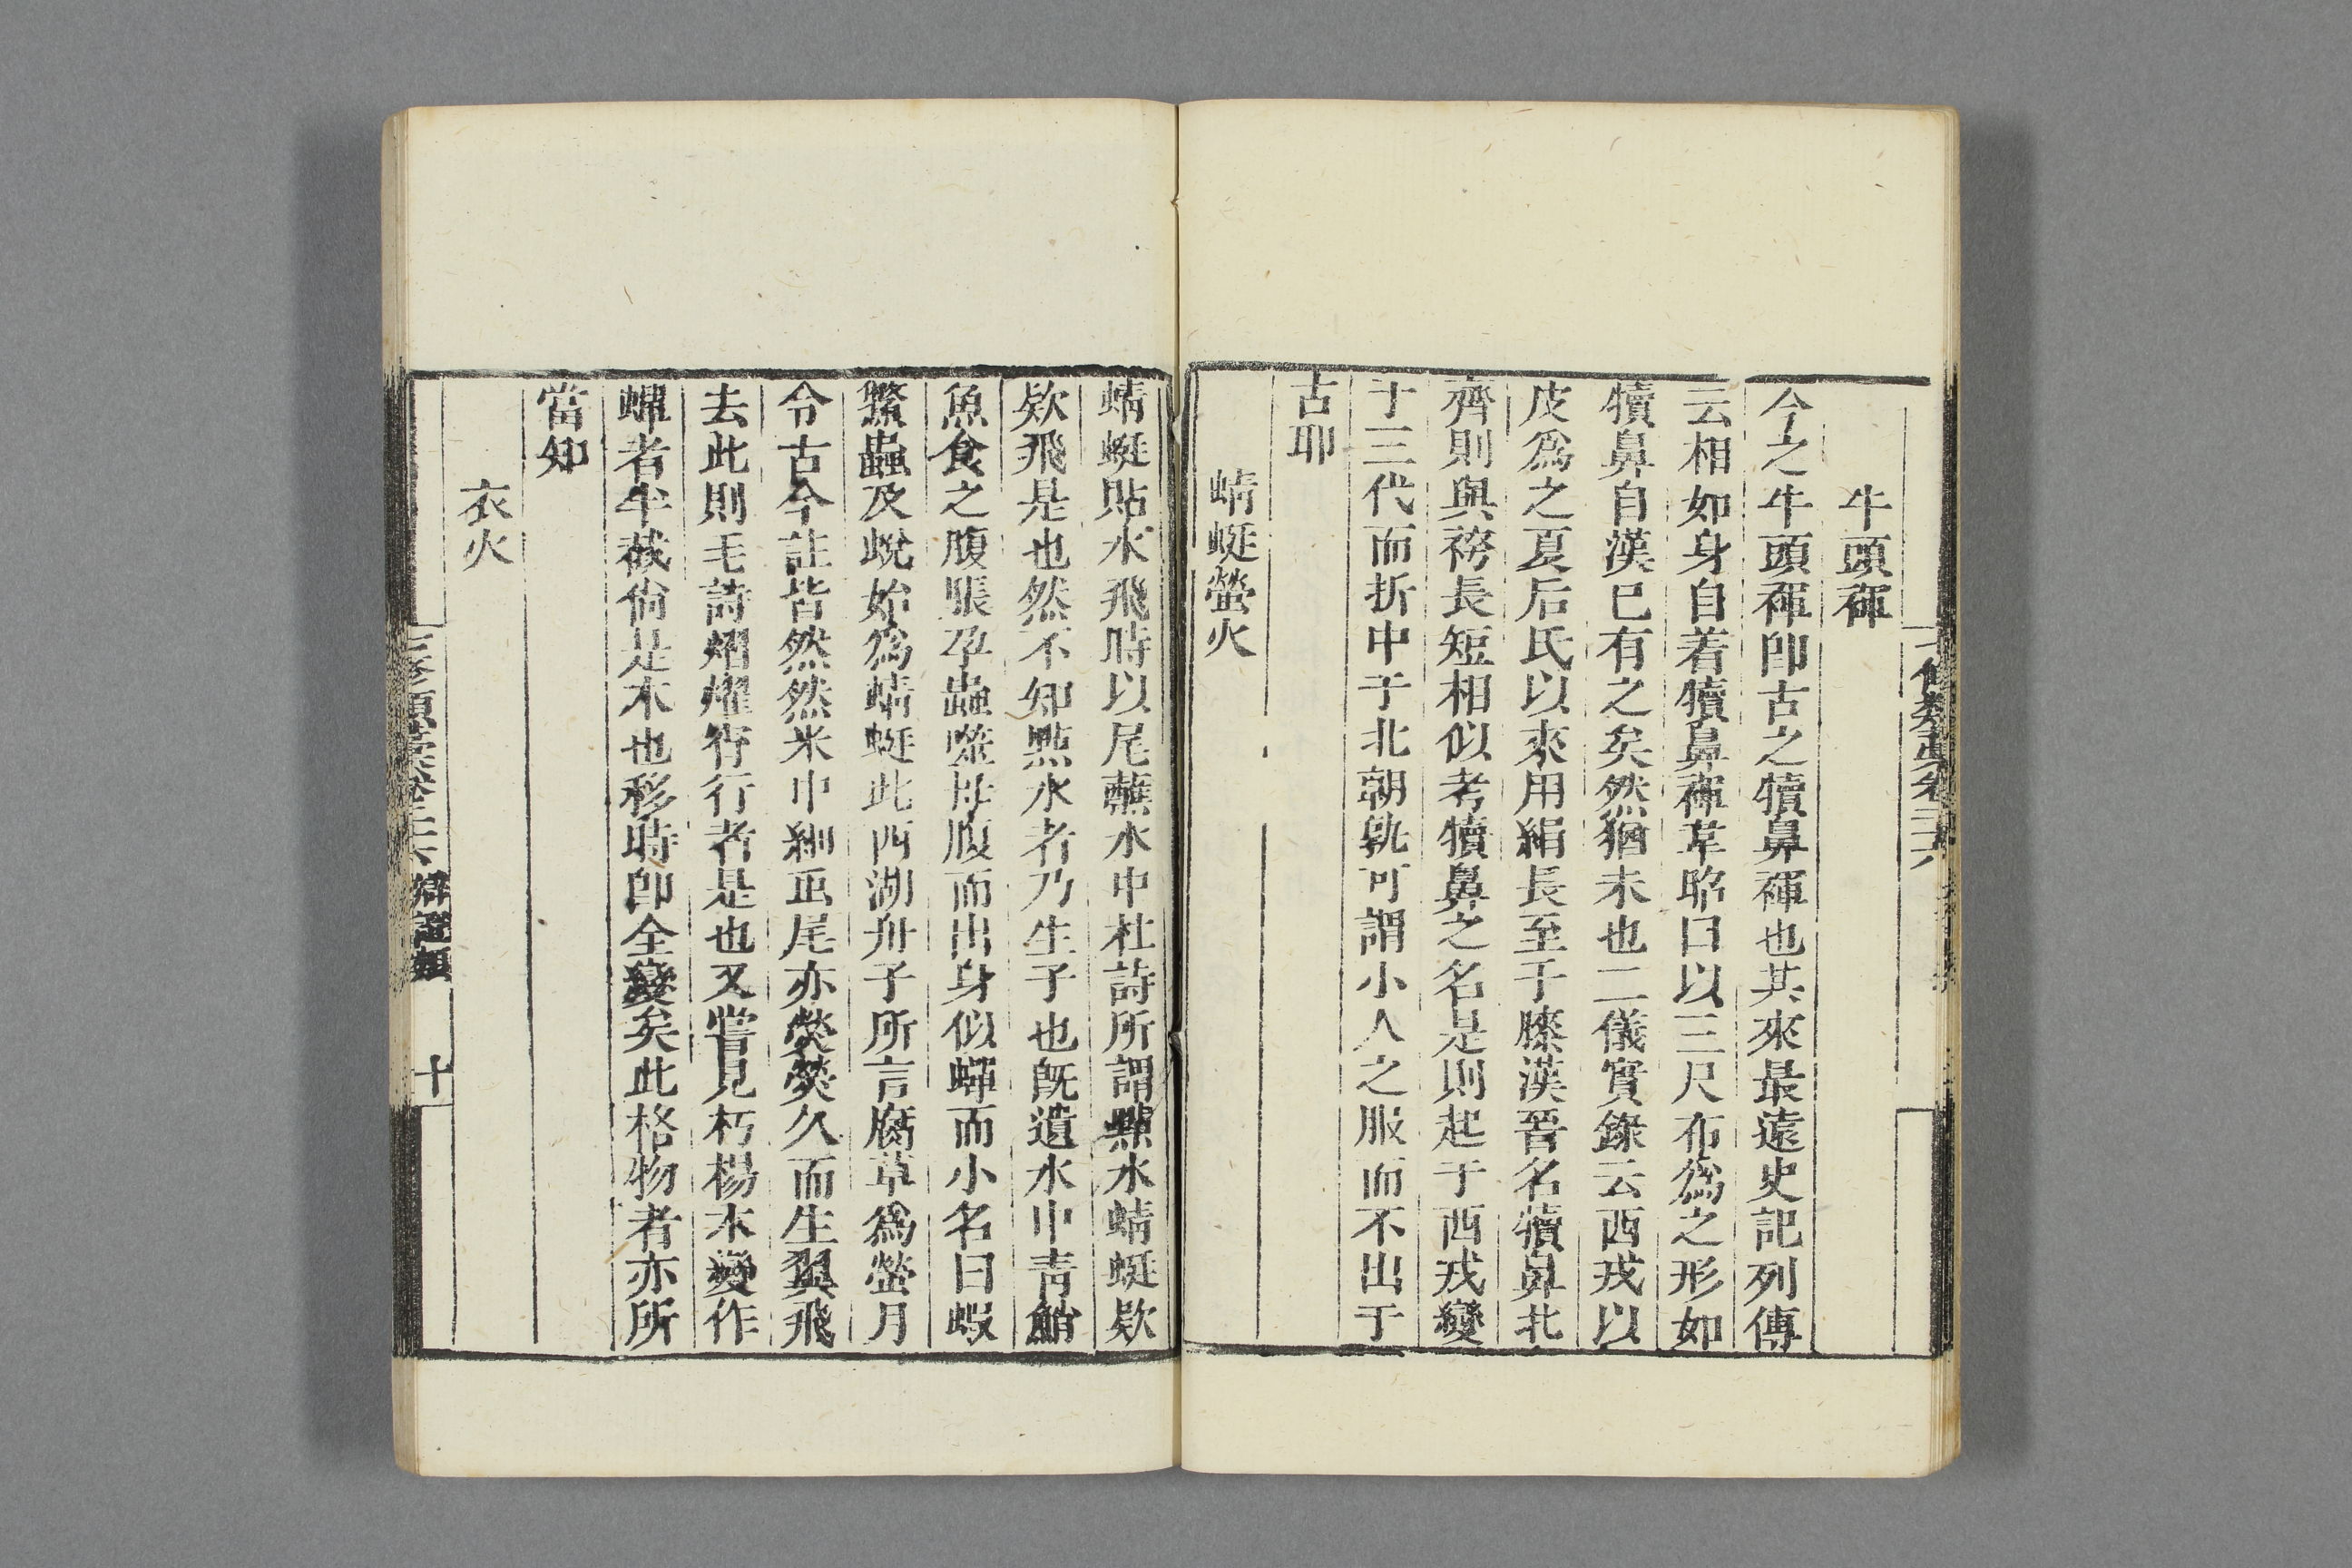 牛頭褌
今之牛頭褌卽古之犢鼻褌也其來最遠史記列傳
云相如身自着犢鼻褌韋昭曰以三尺布爲之形如
犢鼻自漢已有之矣然猶未也二儀實錄云西戎以
皮爲之夏后氏以來用絹長至于膝漢晉名犢鼻北
齊則與袴長短相似考犢鼻之名是則起于西戎變
于三代而折中于北朝孰可謂小人之服而不出于
古耶
蜻蜓螢火
蜻蜓貼水飛時以尾蘸水中杜詩所謂點水蜻蜓欵
欵飛是也然不知點水者乃生子也旣遺水中青鮹
魚食之腹脹孕蟲囓母腹而出身似蟬而小名曰蝦
鱉蟲及蛻始爲蜻蜓此西湖舟子所言腐草爲螢月
令古今註皆然然米中細虫尾亦熒熒久而生翼飛
去此則毛詩熠燿宵行者是也又嘗見朽楊木變作
蟬者半截尚是木也移時卽全變矣此格物者亦所
當知
衣火
七修類藁卷二十六
辯證類
十